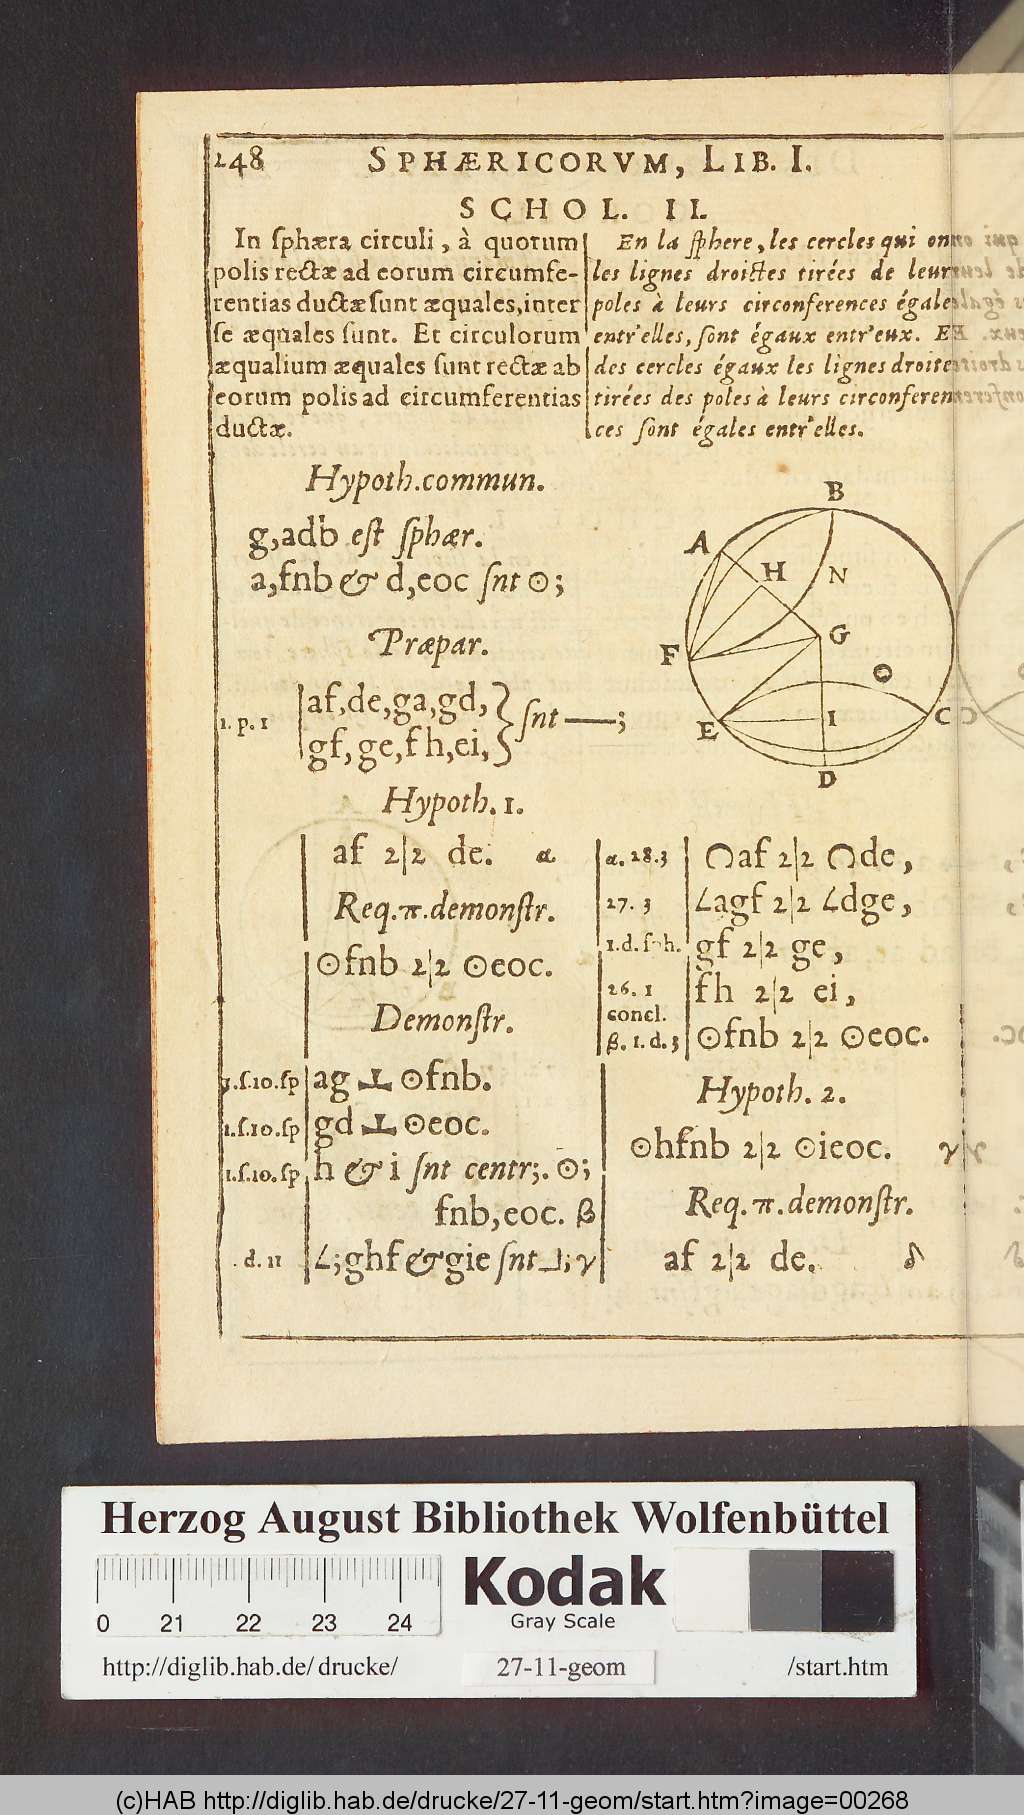 248 SPHÆRICORVM, LIB. I.
SCHOL. II.
In sphæra circuli, à quorum
polis rectæ ad eorum circumfe-
rentias ductæ sunt æquales, inter
se æquales sunt. Et circulorum
æqualium æquales sunt rectæ ab
eorum polis ad circumferentias
ductæ.
En la sphere, les cercles qui ont
les lignes droictes tirées de leurs
poles à leurs circonferences égales
entr'elles, sont égaux entr'eux. Et
des cercles égaux les lignes droites
tirées des poles à leurs circonferen-
ces sont égales entr'elles.
Hypoth. commun.
g,adb est sphær.
a,fnb & d,eoc snt ⊙;
Præpar.
1. p. 1 af,de,ga,gd,
gf,ge,fh,ei, } snt —;
B
A
H
N
G
F
O
E
I
C
D
Hypoth. 1.
af 2|2 de. α
Req. π. demonstr.
⊙fnb 2|2 ⊙eoc.
Demonstr.
1.s.10.sp ag ⊥ ⊙fnb.
1.s.10.sp gd ⊥ ⊙eoc.
1.s.10.sp h & i snt centr;. ⊙;
fnb,eoc. β
d. 11 ∠;ghf & gie snt ⅃; γ
α. 28.3 ⌒af 2|2 ⌒de,
27. 3 ∠agf 2|2 ∠dge,
1.d.sph. gf 2|2 ge,
26. 1 fh 2|2 ei,
concl.
β. 1. d. 3 ⊙fnb 2|2 ⊙eoc.
Hypoth. 2.
⊙hfnb 2|2 ⊙ieoc. γ
Req. π. demonstr.
af 2|2 de. δ
Herzog August Bibliothek Wolfenbüttel
0 21 22 23 24
Kodak
Gray Scale
http://diglib.hab.de/drucke/ 27-11-geom /start.htm
(c)HAB http://diglib.hab.de/drucke/27-11-geom/start.htm?image=00268